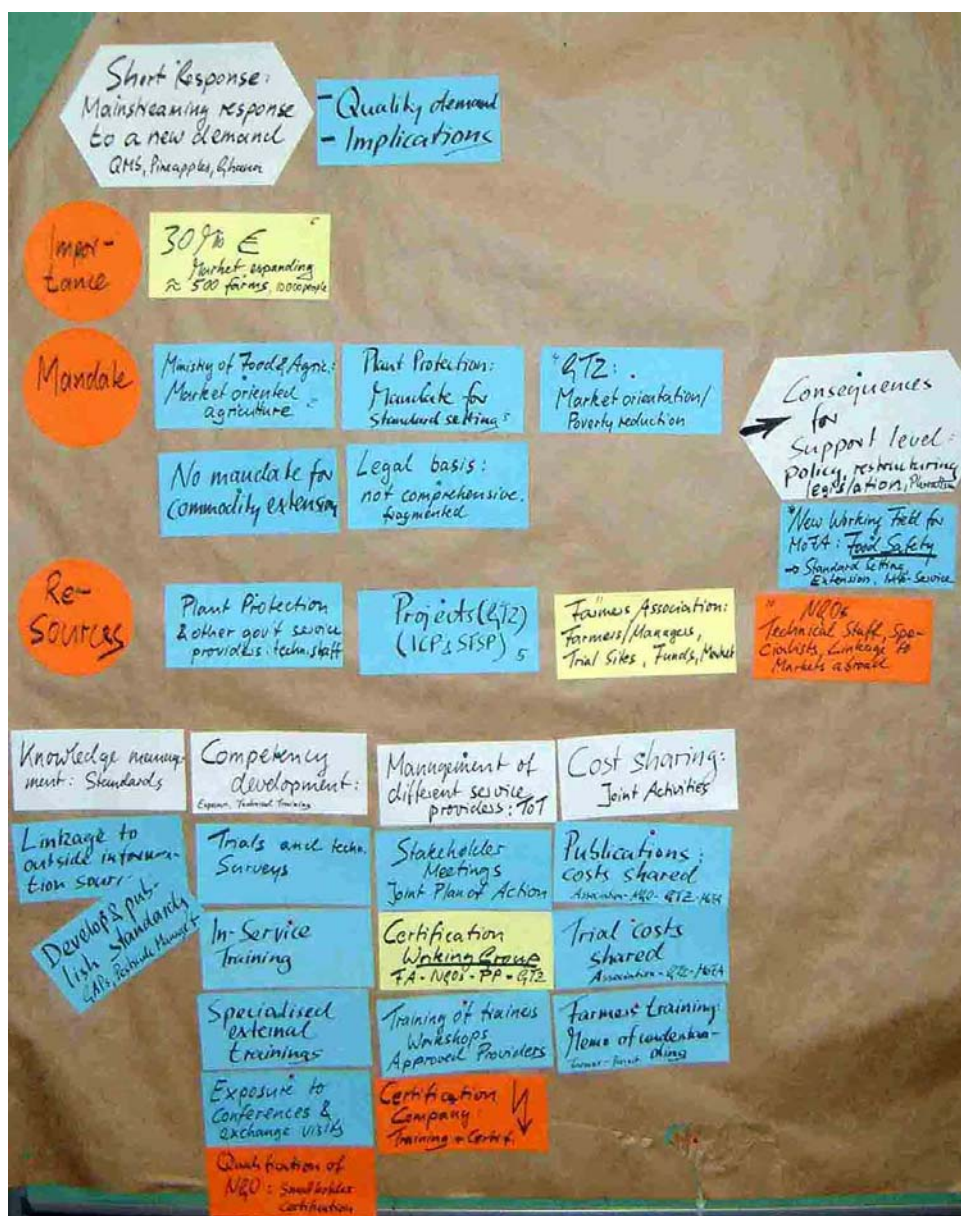 Short Response:
Mainstreaming response
to a new demand
QMS, Pineapples, Ghana
- Quality demand
- Implications
Impor-
tance
30 Mio €
Market expanding
≈ 500 farms, 10000 people
Mandate
Ministry of Food & Agric.:
Market oriented
agriculture
Plant Protection:
Mandate for
Standard setting
GTZ:
Market orientation/
Poverty reduction
No mandate for
commodity extension
Legal basis:
not comprehensive.
fragmented
Consequences
for
Support level:
policy, restructuring
legislation,
New Working Field for
MoFA: Food Safety
→ Standard Setting
Extension, Service
Re-
Sources
Plant Protection
& other gov't service
providers: techn. staff
Projects (GTZ)
(ICP & STSP) 5
Farmers Association:
Farmers/Managers,
Trial Sites, Funds, Market
NGOs
Technical Staff, Spe-
cialists, Linkage to
Markets abroad
Knowledge manage-
ment: Standards
Linkage to
outside informa-
tion sour
Develop & pub-
lish standards
GAPs, Pesticide Manag't
Competency
development:
Exposure, Technical Training
Trials and techn.
Surveys
In-Service
Training
Specialised
external
trainings
Exposure to
Conferences &
exchange visits
Qualification of
NGO: Smallholder
certification
Management of
different service
providers: ToT
Stakeholder
Meetings
Joint Plan of Action
Certification
Working Group
FA - NGOs - PP - GTZ
Training of trainers
Workshops
Approved Providers
Certification
Company:
Training + Certif.
Cost sharing:
Joint Activities
Publications:
costs shared
Association - NGO - GTZ - MoFA
Trial costs
shared
Association - GTZ - MoFA
Farmers training:
Memo of understan-
ding